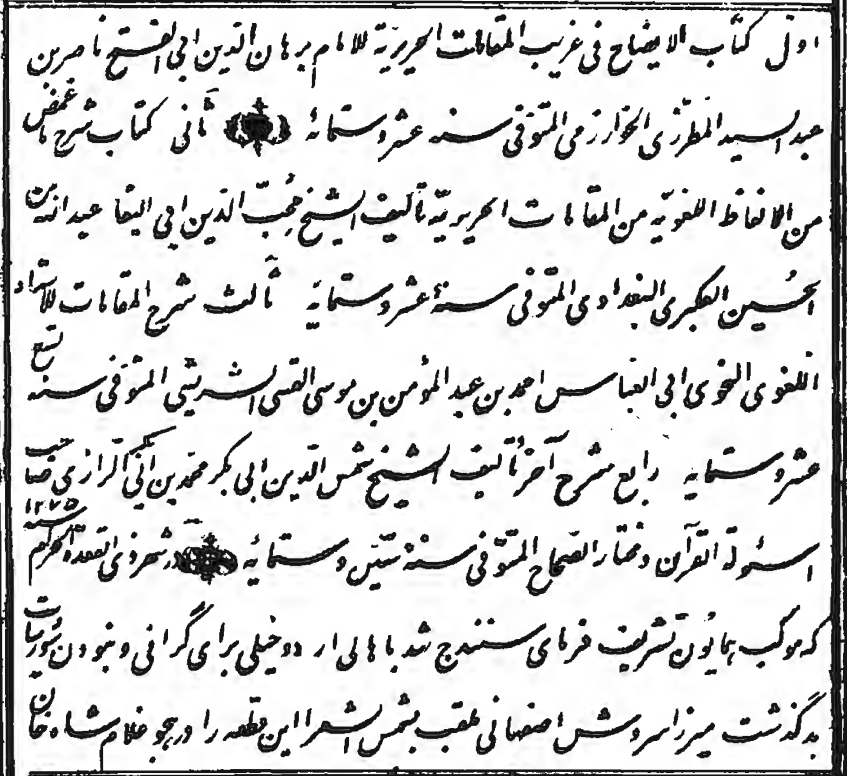 اول کتاب الایضاح فی غریب المقامات الحریریّة للامام برهان الدین ابی الفتح ناصر بن
عبد السید المطرّزی الخوارزمی المتوفی سنه عشر و ستمائة ثانی کتاب شرح ما غمض
من الالفاظ اللغویّه من المقامات الحریریّه تألیف الشیخ محبّ الدین ابی البقا عبدالله بن
الحسین العکبری البغدادی المتوفی سنۀ عشر و ستمایة ثالث شرح المقامات للاستاد
اللغوی النحوی ابی العباس احمد بن عبد المؤمن بن موسی القسی الشریشی المتوفی سنه تسع
عشر و ستمایه رابع شرح آخر تألیف الشیخ شمس الدین ابی بکر محمد بن ابی بکر الرازی صاحب
اسئولة القرآن و مختار الصحاح المتوّفی سنۀ ستّین و ستمائة در شهر ذی القعدة الحرام سنه ۱۲۷۵
که موکب همایون تشریف فرمای سنندج شد باهالی اردو خیلی برای گرانی و نبودن سیورسات
بد گذشت میرزا سروش اصفهانی ملقب بشمس الشعرا این قطعه را در هجو غلام شاه خان